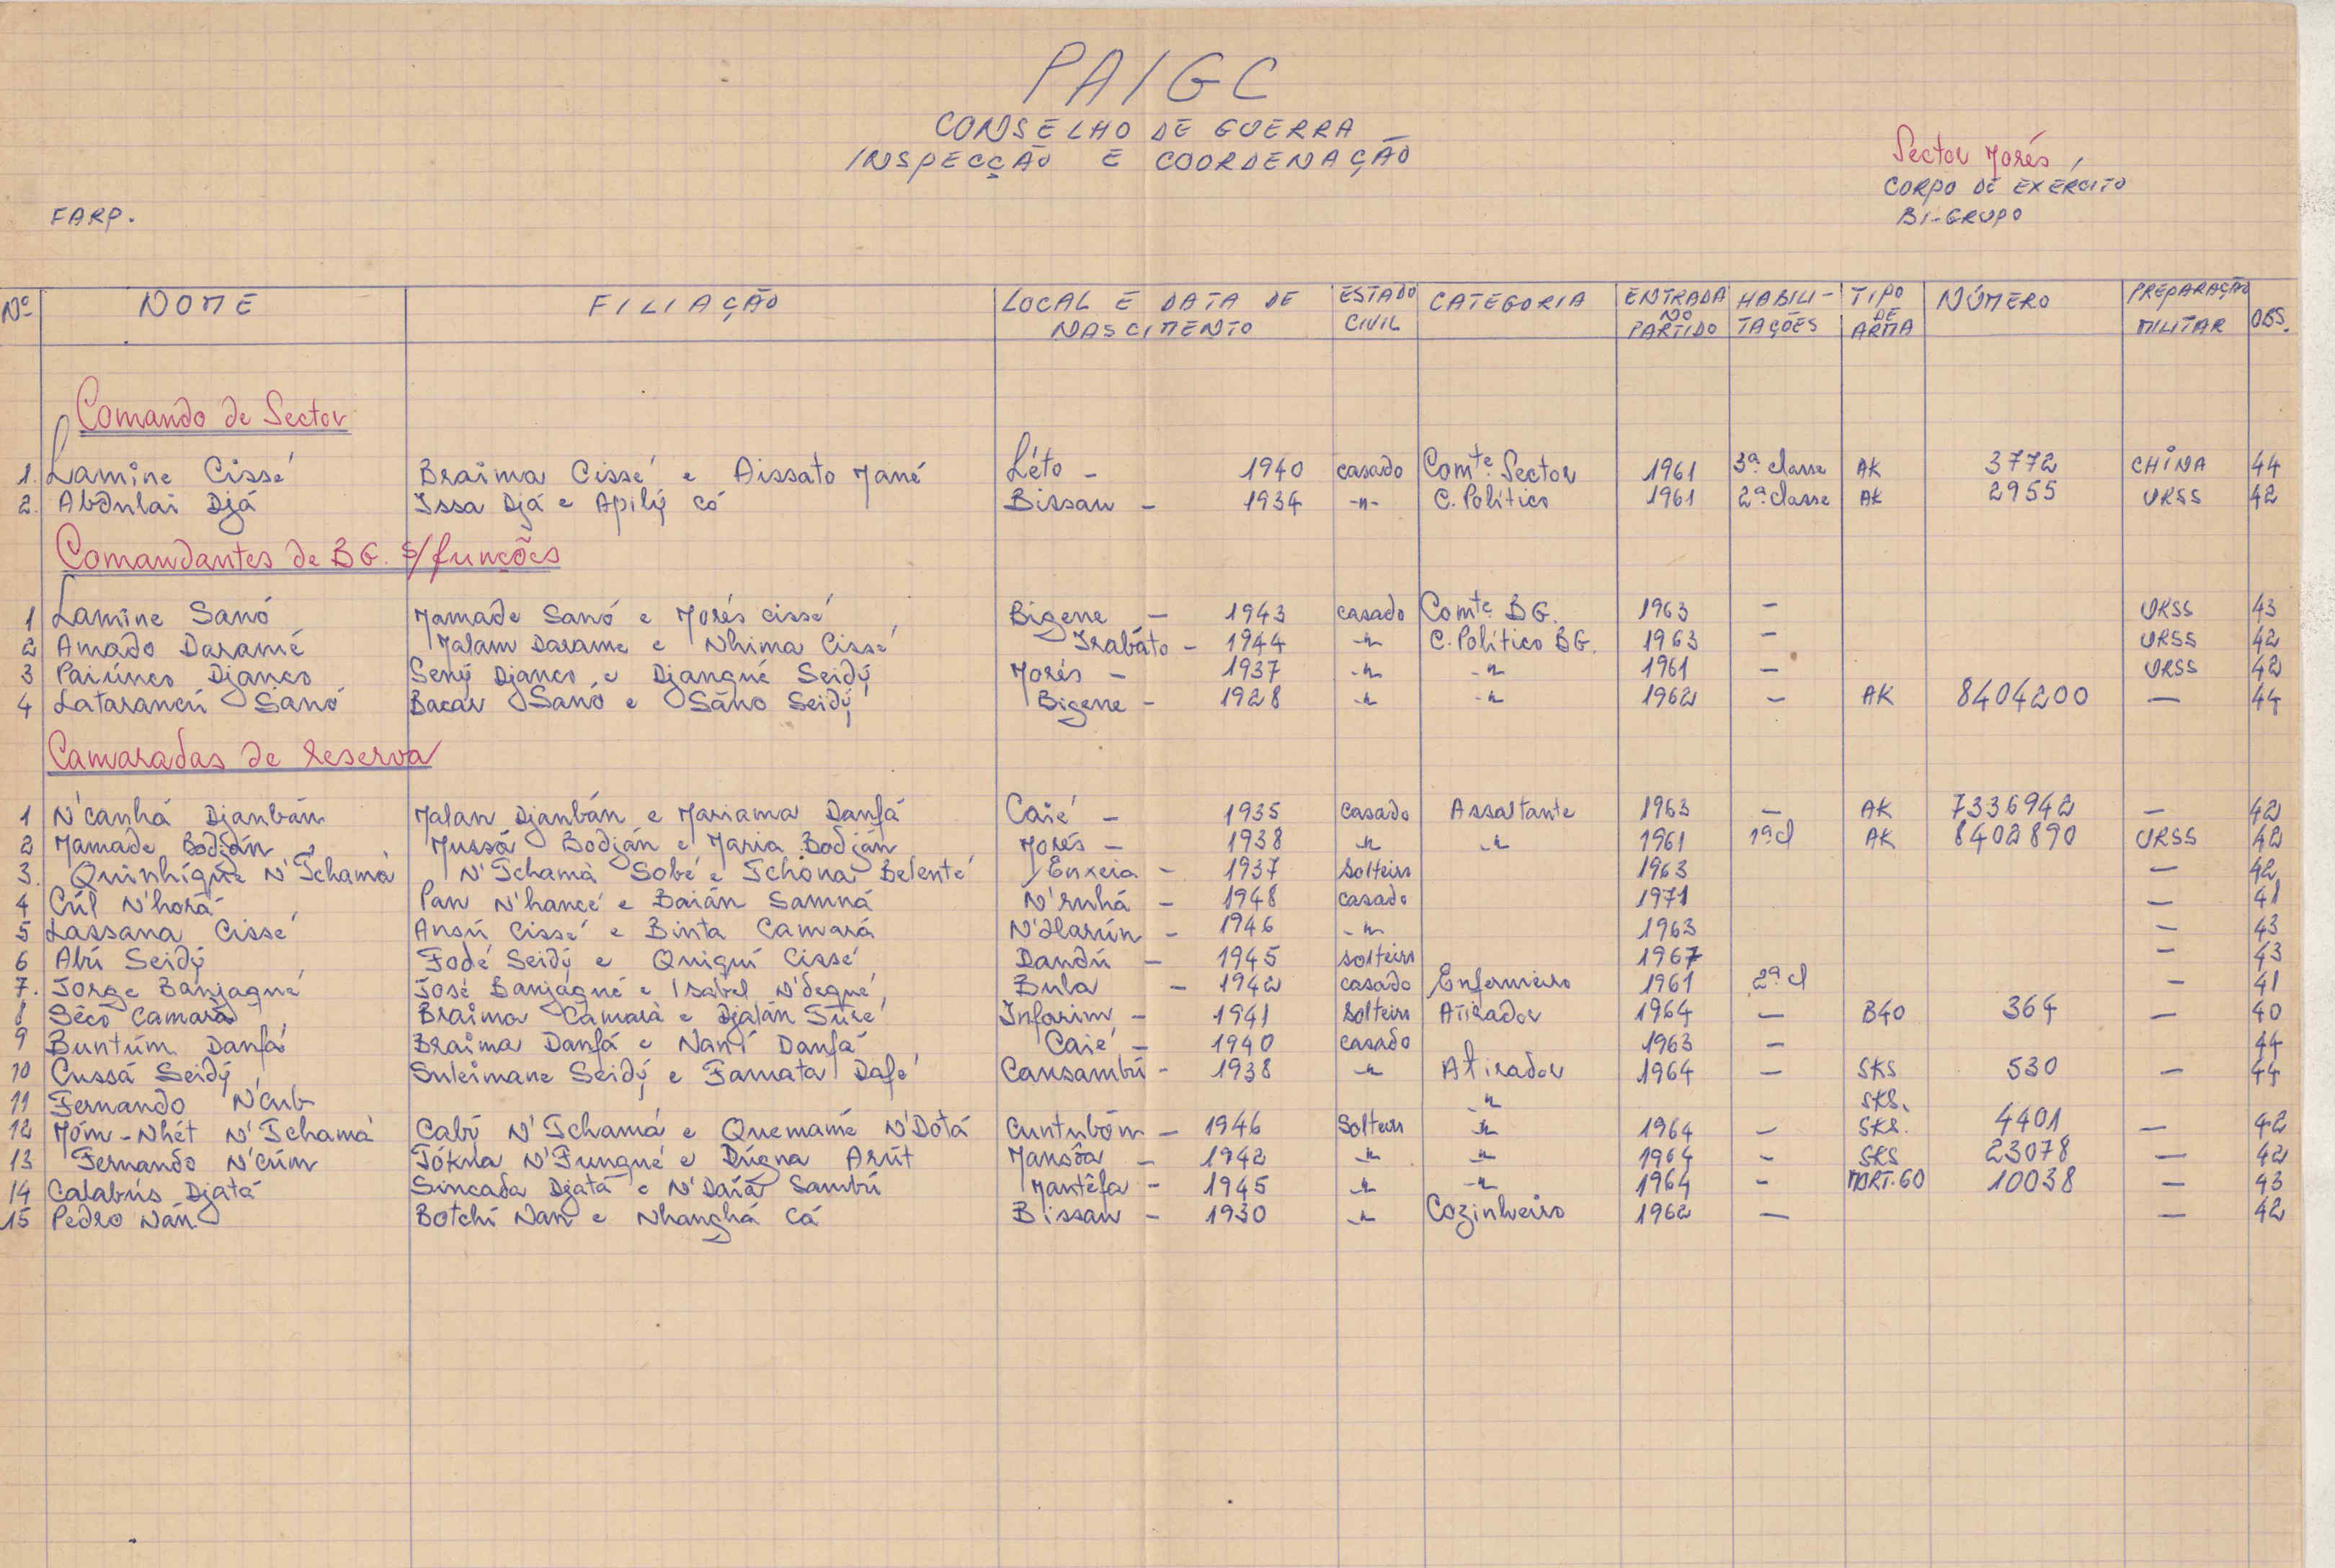 PAIGC
CONSELHO DE GUERRA
INSPECÇÃO E COORDENAÇÃO
Sector Morés,
CORPO DE EXÉRCITO
BI-GRUPO
FARP.
Nº NOME FILIAÇÃO LOCAL E DATA DE NASCIMENTO ESTADO CIVIL CATEGORIA ENTRADA NO PARTIDO HABILI-TAÇÕES TIPO DE ARMA NÚMERO PREPARAÇÃO MILITAR OBS.
Comando de Sector
1. Lamine Cissé Braima Cissé e Aissato Mané Léto - 1940 casado Comte. Sector 1961 3ª classe AK 3772 CHINA 44
2. Abdulai Djá Issa Djá e Apilý Có Bissau - 1934 -"- C. Político 1961 2ª classe AK 2955 URSS 42
Comandantes de BG. s/funções
1 Lamine Sanó Mamade Sanó e Morés Cissé Bigene - 1943 casado Comte BG. 1963 - URSS 43
2 Amado Daramé Malam Darame e Nhima Cissé Irabáto - 1944 -"- C. Político BG. 1963 - URSS 42
3 Paiúnco Djanco Sený Djanco e Djangué Seidý Morés - 1937 -"- -"- 1961 - URSS 42
4 Latarancú Sanó Bacar Sanó e Sãno Seidý Bigene - 1928 -"- -"- 1962 - AK 8404200 - 44
Camaradas de reserva
1 N'canhá Djanbán Malan Djanbán e Mariama Danfá Caié - 1935 casado Assaltante 1963 - AK 7336942 - 42
2 Mamade Bodján Mussá Bodján e Maria Bodján Morés - 1938 -"- -"- 1961 1ª cl AK 8402890 URSS 42
3. Quinhígue N'Tchamá N'Tchamà Sobé e Tchóna Belenté Enxeia - 1937 solteiro 1963 - 42
4 Cúl N'horá Pan N'hancé e Baián Samná N'rnhá - 1948 casado 1971 - 41
5 Lassana Cissé Ansú Cissé e Binta Camará - 1946 -"- 1963 - 43
6 Abú Seidý Fodé Seidý e Quiguí Cissé Dandú - 1945 solteiro 1967 - 43
7. Jorge Banjagué José Banjagué e Isabel N'degué Bula - 1942 casado Enfermeiro 1961 2ª cl - 41
8 Sêco Camará Braima Camará e Djalán Turé Infarim - 1941 solteiro Atirador 1964 - B40 364 - 40
9 Buntúm Danfá Braima Danfá e Naní Danfá Caié - 1940 casado 1963 - 44
10 Cussá Seidý Suleimane Seidý e Famata Dafé Cansambú - 1938 -"- Atirador 1964 - SKS 530 - 44
11 Fernando N'cub -"- SKS.
12 Móm-Nhét N'Tchamá Cabý N'Tchamá e Quemamé N'Dotá Cuntubóm - 1946 Solteiro -"- 1964 - SKS. 4401 - 42
13 Fernando N'cúm Tókna N'Fungué e Dúgna Arút Mansôa - 1942 -"- -"- 1964 - SKS 23078 - 42
14 Calabús Djatá Sincada Djatá e N'Daiá Sambú Mantêfa - 1945 -"- -"- 1964 - MORT.60 10038 - 43
15 Pedro Nán Botchí Nan e Nhanghá Cá Bissau - 1930 -"- Cozinheiro 1962 - - 42